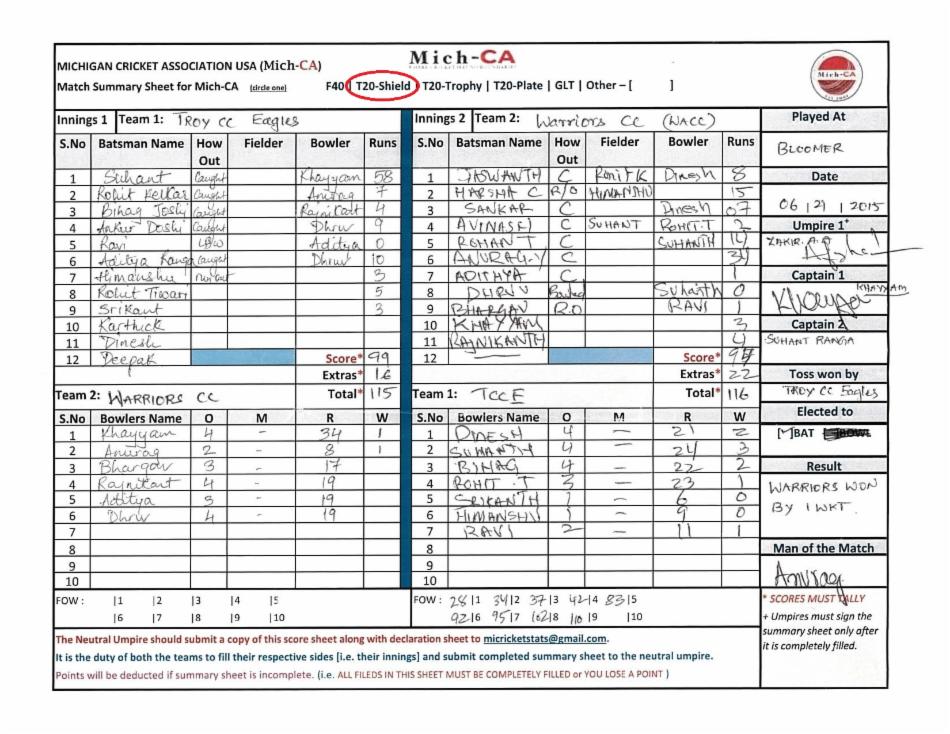 MICHIGAN CRICKET ASSOCIATION USA (Mich-CA)
Mich-CA
Match Summary Sheet for Mich-CA (circle one) F40 | T20-Shield | T20-Trophy | T20-Plate | GLT | Other – [ ]
Mich-CA
Innings 1 Team 1: TROY CC Eagles
S.No Batsman Name How Out Fielder Bowler Runs
1 Suhant Caught Khayyam 58
2 Rohit Kelkar Caught Anurag 7
3 Bihag Joshi Caught RajniCant 4
4 Ankur Doshi Caught Dhruv 9
5 Ravi LBW Aditya 0
6 Aditya Ranga Caught Dhruv 10
7 Himanshu Not out 3
8 Rohit Tiwari 5
9 Srikant 3
10 Karthick
11 Dinesh
12 Deepak Score* 99
Extras* 16
Total* 115
Team 2: WARRIORS CC
S.No Bowlers Name O M R W
1 Khayyam 4 - 34 1
2 Anurag 2 - 8 1
3 Bhargav 3 - 17
4 Rajnikant 4 - 19
5 Aditya 3 - 19
6 Dhruv 4 - 19
7
8
9
10
FOW : |1 |2 |3 |4 |5
|6 |7 |8 |9 |10
Innings 2 Team 2: Warriors CC (WACC)
S.No Batsman Name How Out Fielder Bowler Runs
1 JASWANTH C Rohit K Dinesh 8
2 HARSHA C R/O HIMANSHU 15
3 SANKAR C Dinesh 07
4 AVINASH C SUHANT ROHIT.T 2
5 ROHAN T C SUHANTH 14
6 ANURAG-Y C
7 ADITHYA C 1
8 DHRUV Bowled Suhanth 0
9 BHARGAV R.O RAVI 1
10 KHAYYAM 3
11 RAJNIKANTH 4
12 Score* 94
Extras* 22
Total* 116
Team 1: TCCE
S.No Bowlers Name O M R W
1 DINESH 4 — 21 2
2 SUHANTH 4 — 24 3
3 BIHAG 4 — 22 2
4 ROHIT .T 3 — 23 1
5 SRIKANTH 1 – 6 0
6 HIMANSHU 1 – 9 0
7 RAVI 2 – 11 1
8
9
10
FOW : 28|1 34|2 37|3 42|4 83|5
92|6 95|7 102|8 110|9 |10
Played At
BLOOMER
Date
06 / 21 / 2015
Umpire 1+
ZAKIR.A.
Captain 1
KHAYYAM
Captain 2
SUHANT RANGA
Toss won by
TROY CC Eagles
Elected to
BAT BOWL
Result
WARRIORS WON
BY 1 WKT.
Man of the Match
Anurag
* SCORES MUST TALLY
+ Umpires must sign the
summary sheet only after
it is completely filled.
The Neutral Umpire should submit a copy of this score sheet along with declaration sheet to micricketstats@gmail.com.
It is the duty of both the teams to fill their respective sides [i.e. their innings] and submit completed summary sheet to the neutral umpire.
Points will be deducted if summary sheet is incomplete. (i.e. ALL FILEDS IN THIS SHEET MUST BE COMPLETELY FILLED or YOU LOSE A POINT )